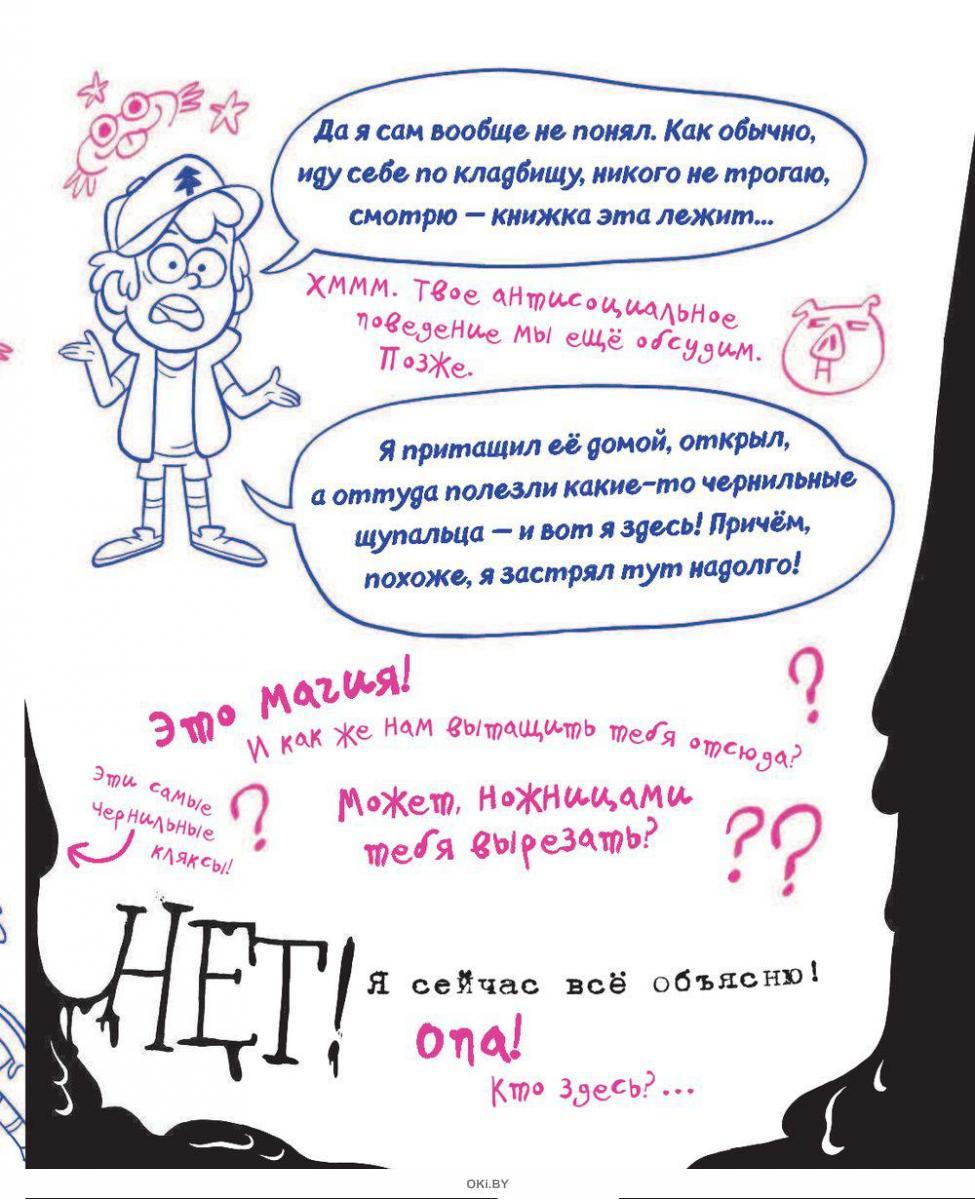 Да я сам вообще не понял. Как обычно,
иду себе по кладбищу, никого не трогаю,
смотрю — книжка эта лежит...
Хммм. Твое антисоциальное
поведение мы ещё обсудим.
Позже.
Я притащил её домой, открыл,
а оттуда полезли какие-то чернильные
щупальца — и вот я здесь! Причём,
похоже, я застрял тут надолго!
Это магия!
?
И как же нам вытащить тебя отсюда?
Эти самые
чернильные
кляксы!
?
Может, ножницами
тебя вырезать?
??
НЕТ!
Я сейчас всё объясню!
Опа!
Кто здесь?...
OKi.BY